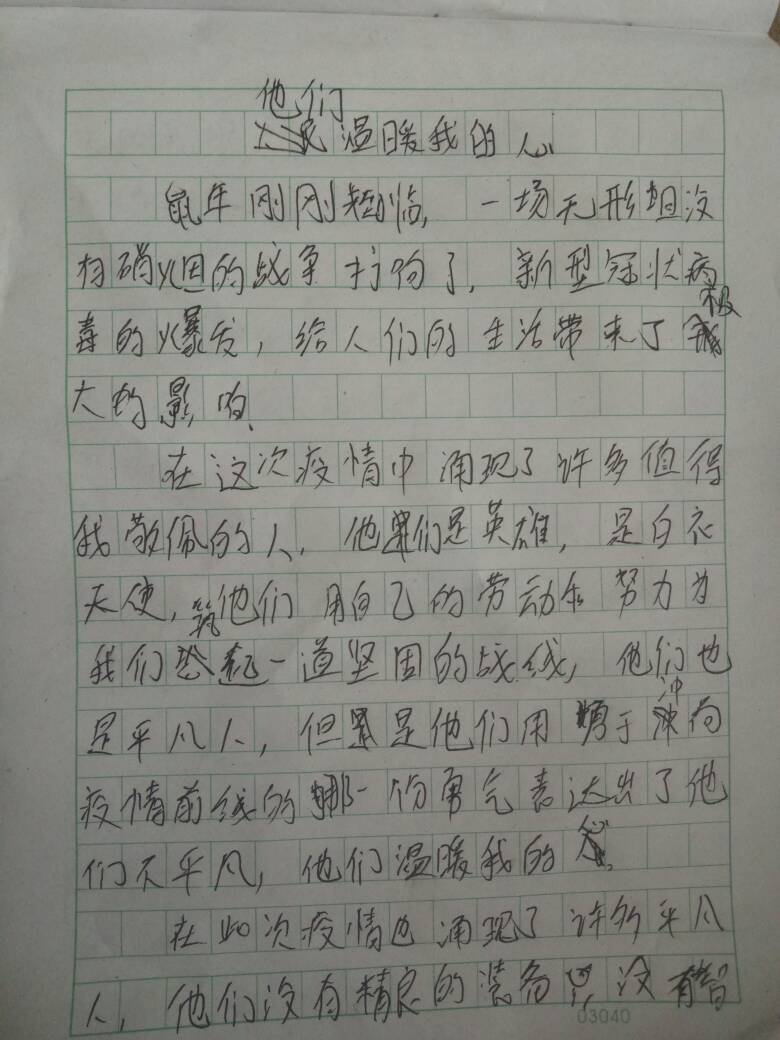 他们
温暖我的心
鼠年刚刚临，一场无形且没
有硝烟的战争打响了，新型冠状病
毒的爆发，给人们的生活带来了极
大的影响。
在这次疫情中涌现了许多值得
我敬佩的人，他们是英雄，是白衣
天使，他们用自己的劳动和努力为
我们筑起一道坚固的战线，他们也
是平凡人，但是他们用勇于冲向
疫情前线的那一份勇气表达出了他
们不平凡，他们温暖我的心。
在此次疫情也涌现了许多平凡
人，他们没有精良的装备没有
03040